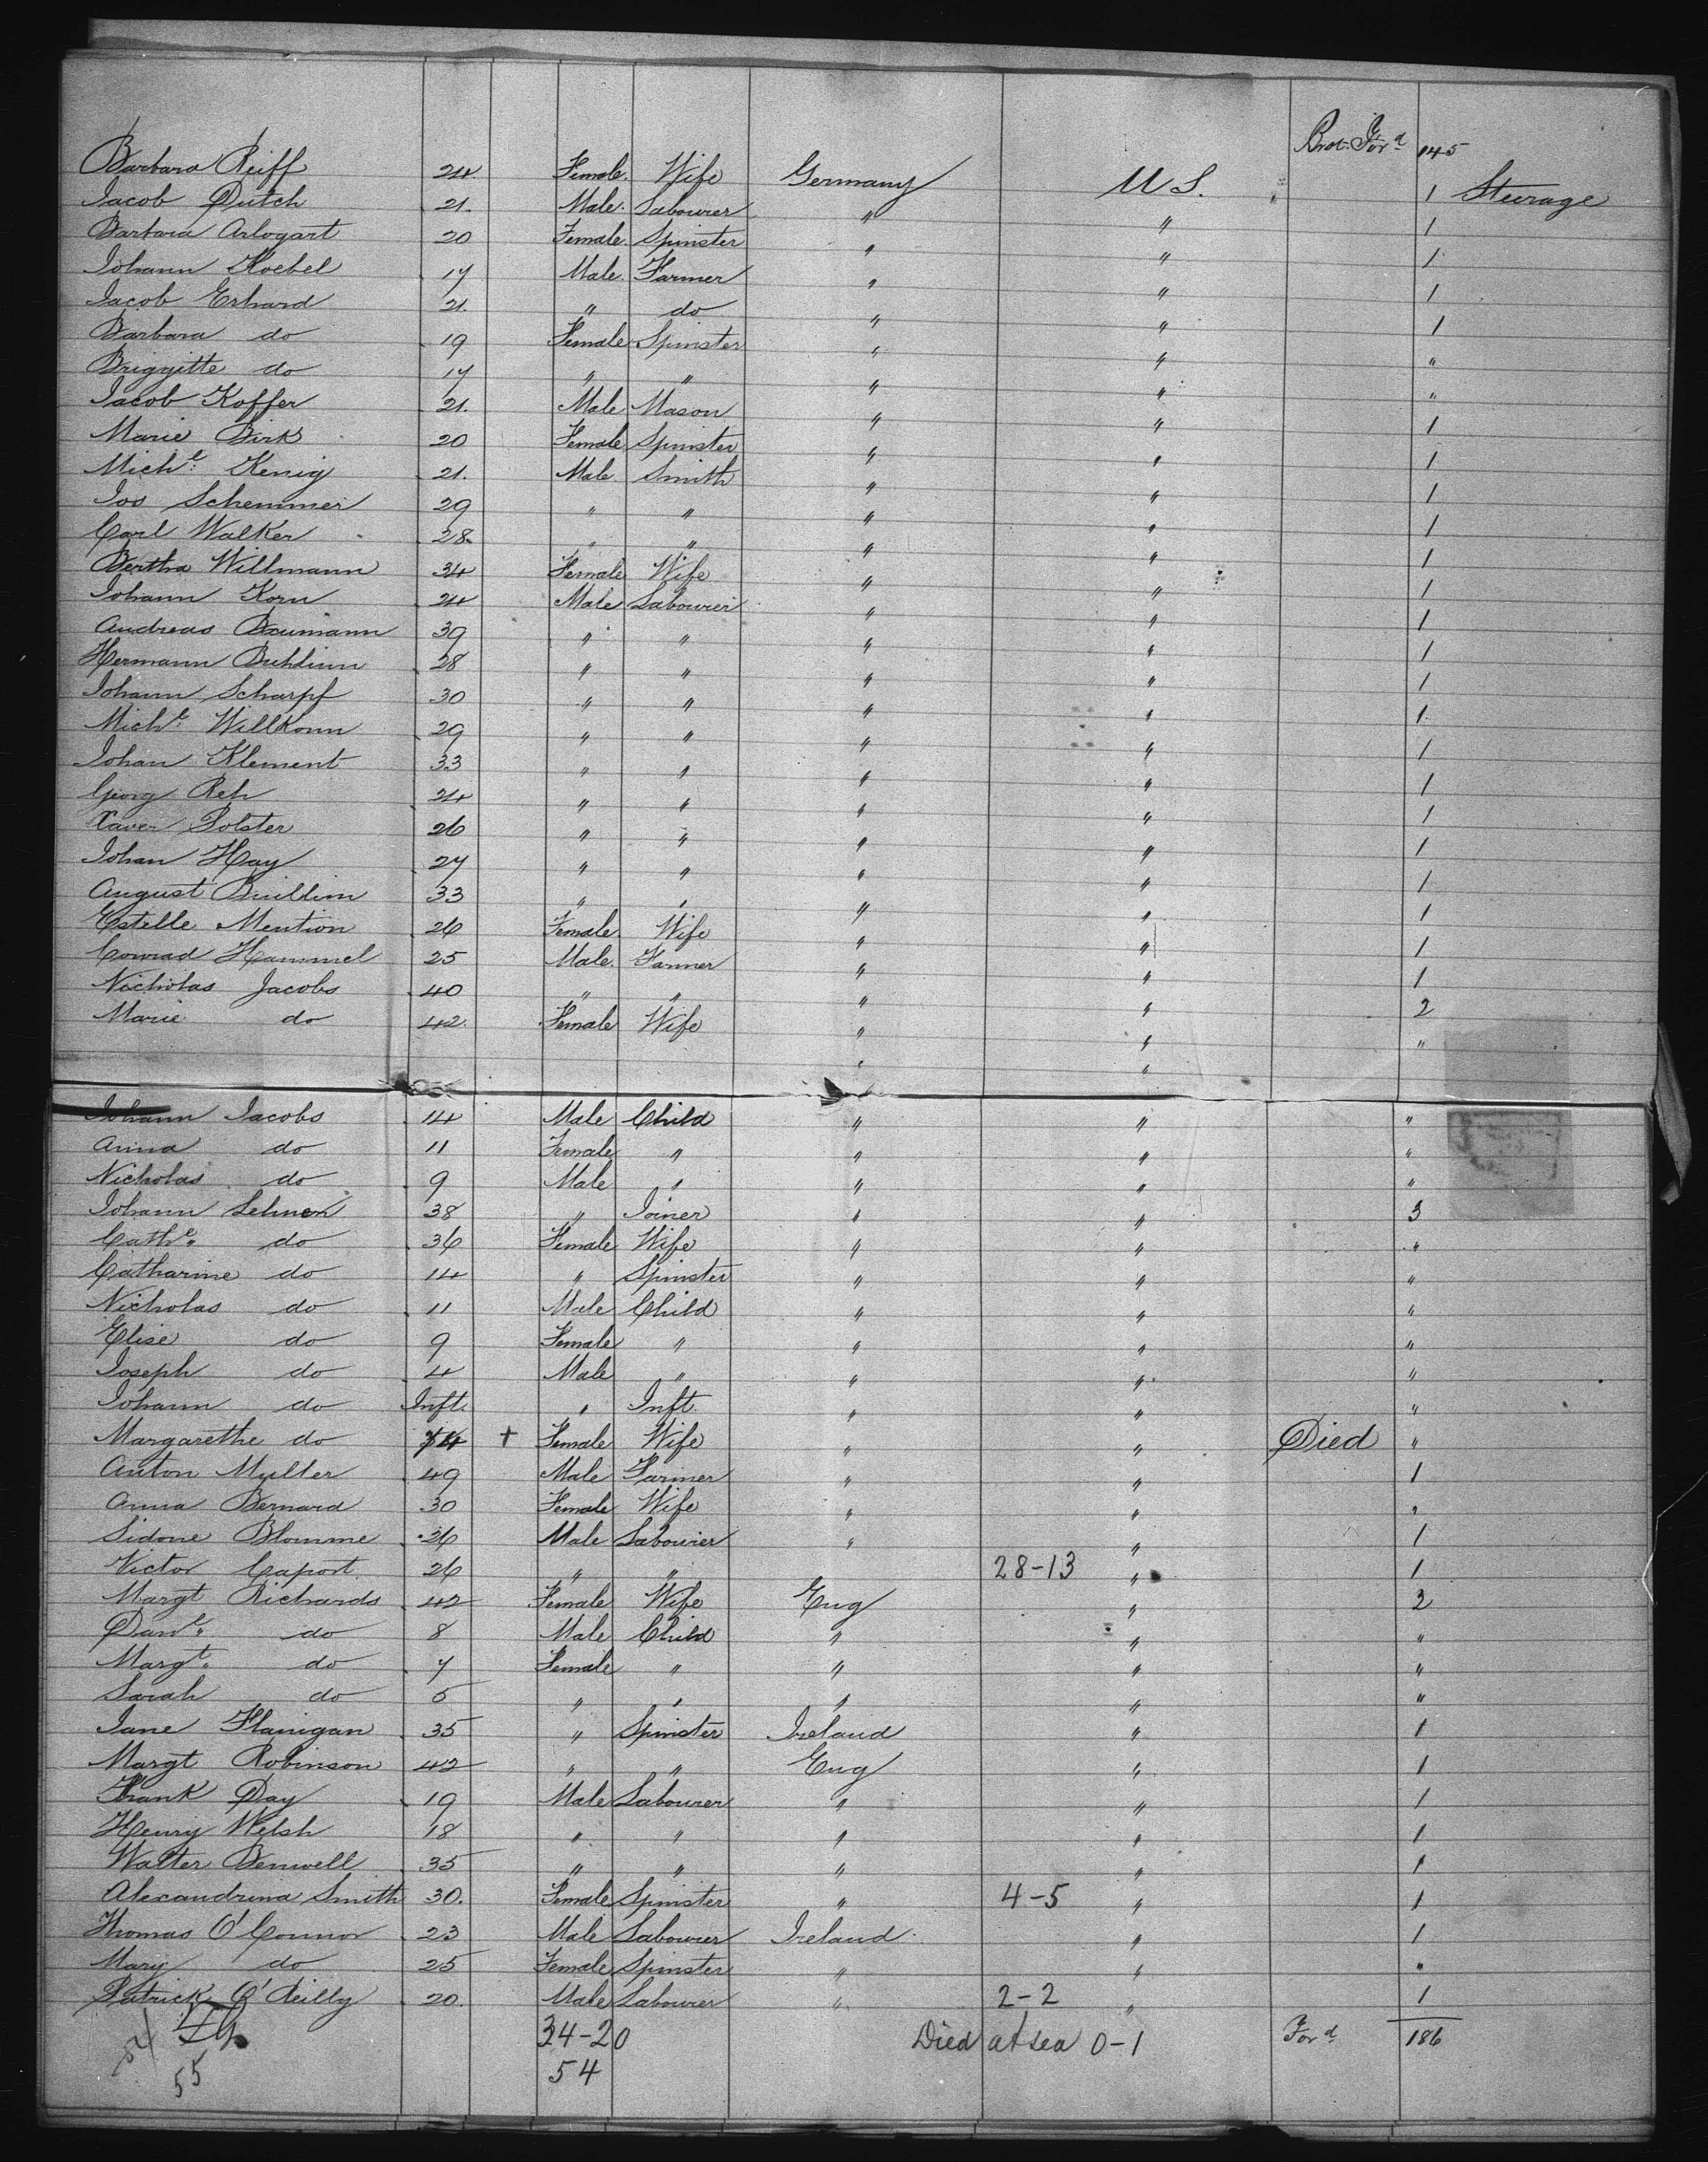 Brot. Ford 145
Barbara Reiff 24 Female Wife Germany U S. 1 Steerage
Jacob Dutch 21. Male Labourer " " 1
Barbara Arlogart 20 Female Spinster " " 1
Johann Koebel 17 Male Farmer " " 1
Jacob Erhard 21. " do " " 1
Barbara do 19 Female Spinster " " "
Briggitte do 17 " " " " "
Jacob Koffer 21. Male Mason " " 1
Marie Birk 20 Female Spinster " " 1
Michl. Kenig 21. Male Smith " " 1
Jos Schemmer 29 " " " " 1
Carl Walker 28. " " " " 1
Bertha Willmann 34 Female Wife " " 1
Johann Korn 24 Male Labourer " " 1
Andreas Baumann 39 " " " " 1
Hermann 28 " " " " 1
Johann Scharpf 30 " " " " 1
Michl. Willkonn 29 " " " " 1
Johan Klement 33 " " " " 1
Georg Reh 24 " " " " 1
Xaver Polster 26 " " " " 1
Johan Hay 27 " " " " 1
August 33 " " " " 1
Estelle Mention 26 Female Wife " " 1
Conrad Hammel 25 Male Farmer " " 1
Nicholas Jacobs 40 " " " " 2
Marie do 42. Female Wife " " "
Johann Jacobs 14 Male Child " " "
Anna do 11 Female " " " "
Nicholas do 9 Male " " " "
Johann Lehnen 38 " Joiner " " 3
Cathe. do 36 Female Wife " " "
Catharine do 14 " Spinster " " "
Nicholas do 11 Male Child " " "
Elise do 9 Female " " " "
Joseph do 4 Male " " " "
Johann do Inft. " Inft. " " "
Margarethe do 74 + Female Wife " " Died "
Anton Muller 49 Male Farmer " " 1
Anna Bernard 30 Female Wife " " "
Sidone Blomme 26 Male Labourer " " 1
Victor Caport. 26 " " 28-13 " 1
Margt Richards 42 Female Wife Eng " 2
Danl. do 8 Male Child " " "
Margt. do 7 Female " " " "
Sarah do 5 " " " " "
Jane Flanigan 35 " Spinster Ireland " 1
Margt Robinson 42 " " Eng " 1
Frank Day 19 Male Labourer " " 1
Henry Welsh 18 " " " " 1
Walter Benwell 35 " " " " 1
Alexandrina Smith 30. Female Spinster " 4-5 " 1
Thomas O'Connor 23 Male Labourer Ireland " 1
Mary do 25 Female Spinster " " "
Patrick O'Reilly 20. Male Labourer " 2-2 " 1
34-20 Died at sea 0-1 Ford 186
55 54